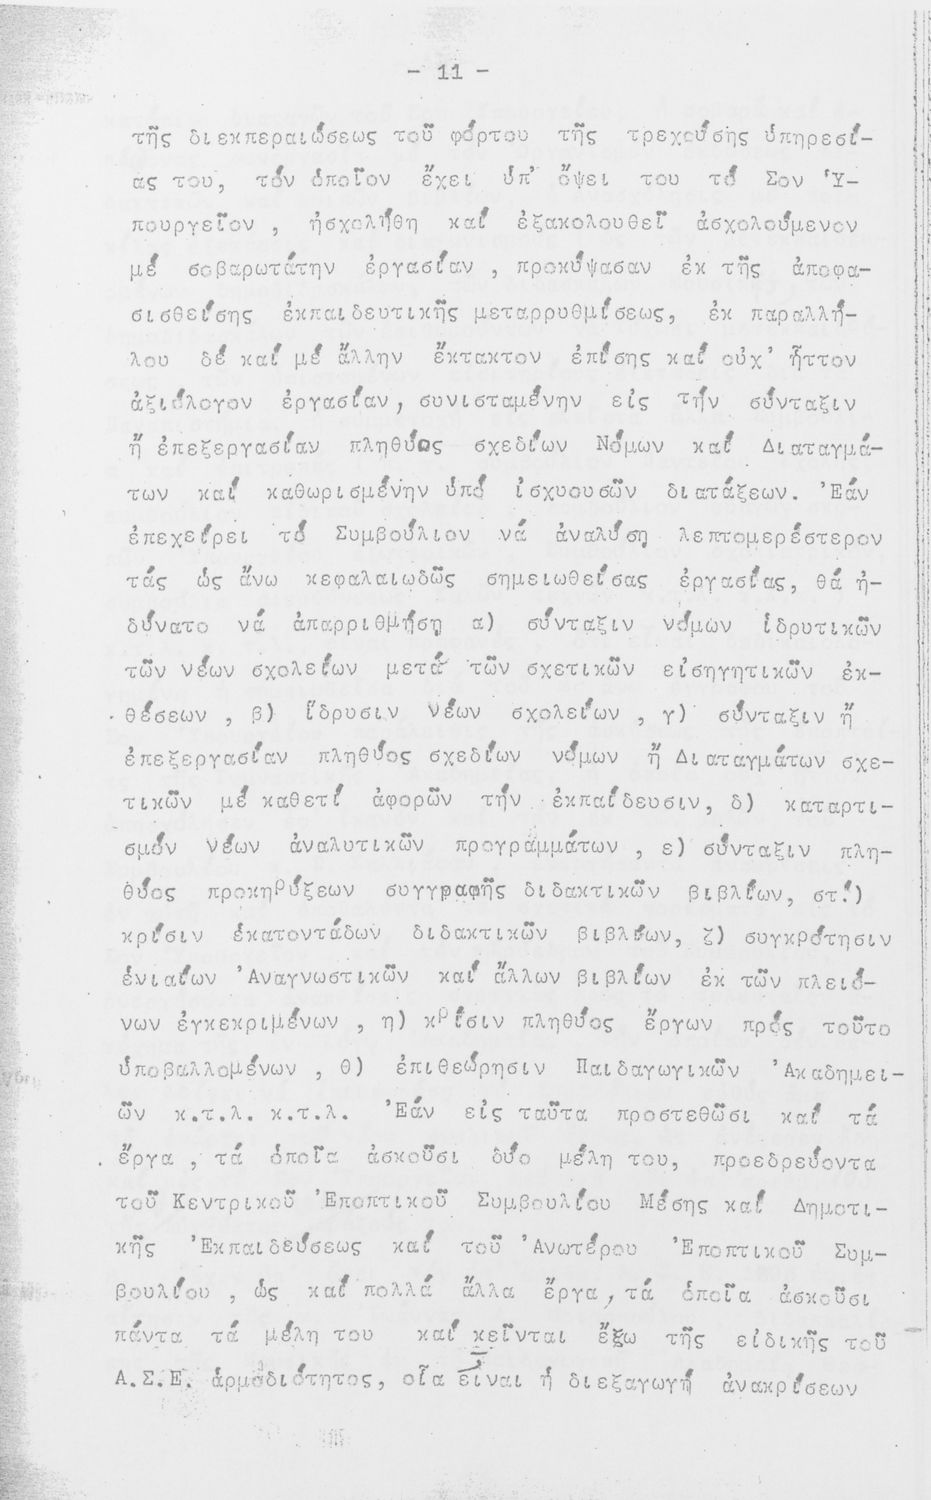 - 11 -
τῆς διεκπεραιώσεως τοῦ φόρτου τῆς τρεχούσης ὑπηρεσί-
ας του, τόν ὁποῖον ἔχει ὑπ' ὄψει του τό Σον Ὑ-
πουργεῖον , ἠσχολήθη καί ἐξακολουθεῖ ἀσχολούμενον
μέ σοβαρωτάτην ἐργασίαν , προκύψασαν ἐκ τῆς ἀποφα-
σισθείσης ἐκπαιδευτικῆς μεταρρυθμίσεως, ἐκ παραλλή-
λου δέ καί μέ ἄλλην ἔκτακτον ἐπίσης καί οὐχ' ἧττον
ἀξιόλογον ἐργασίαν, συνισταμένην εἰς τήν σύνταξιν
ἤ ἐπεξεργασίαν πληθύος σχεδίων Νόμων καί Διαταγμά-
των καί καθωρισμένην ὑπό ἰσχυουσῶν διατάξεων. Ἐάν
ἐπεχείρει τό Συμβούλιον νά ἀναλύσῃ λεπτομερέστερον
τάς ὡς ἄνω κεφαλαιωδῶς σημειωθείσας ἐργασίας, θά ἠ-
δύνατο νά ἀπαρριθμήσῃ α) σύνταξιν νόμων ἱδρυτικῶν
τῶν νέων σχολείων μετά τῶν σχετικῶν εἰσηγητικῶν ἐκ-
θέσεων , β) ἵδρυσιν νέων σχολείων , γ) σύνταξιν ἤ
ἐπεξεργασίαν πληθύος σχεδίων νόμων ἤ Διαταγμάτων σχε-
τικῶν μέ καθετί ἀφορῶν τήν ἐκπαίδευσιν, δ) καταρτι-
σμόν νέων ἀναλυτικῶν προγραμμάτων , ε) σύνταξιν πλη-
θύος προκηρύξεων συγγραφῆς διδακτικῶν βιβλίων, στ!)
κρίσιν ἑκατοντάδων διδακτικῶν βιβλίων, ζ) συγκρότησιν
ἑνιαίων Ἀναγνωστικῶν καί ἄλλων βιβλίων ἐκ τῶν πλειό-
νων ἐγκεκριμένων , η) κρίσιν πληθύος ἔργων πρός τοῦτο
ὑποβαλλομένων , θ) ἐπιθεώρησιν Παιδαγωγικῶν Ἀκαδημει-
ῶν κ.τ.λ. κ.τ.λ. Ἐάν εἰς ταῦτα προστεθῶσι καί τά
ἔργα , τά ὁποῖα ἀσκοῦσι δύο μέλη του, προεδρεύοντα
τοῦ Κεντρικοῦ Ἐποπτικοῦ Συμβουλίου Μέσης καί Δημοτι-
κῆς Ἐκπαιδεύσεως καί τοῦ Ἀνωτέρου Ἐποπτικοῦ Συμ-
βουλίου , ὡς καί πολλά ἄλλα ἔργα, τά ὁποῖα ἀσκοῦσι
πάντα τά μέλη του καί κεῖνται ἔξω τῆς εἰδικῆς τοῦ
Α.Σ.Ε. ἁρμοδιότητος, οἷα εἶναι ἡ διεξαγωγή ἀνακρίσεων